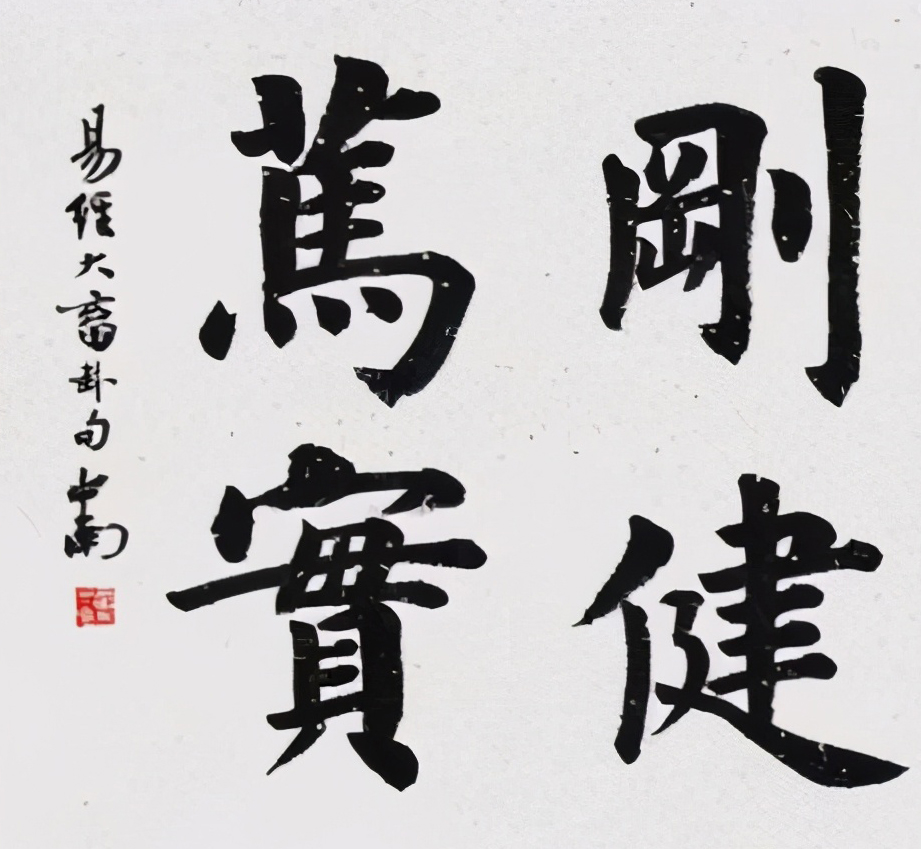 剛健
篤實
易經大畜卦句 南